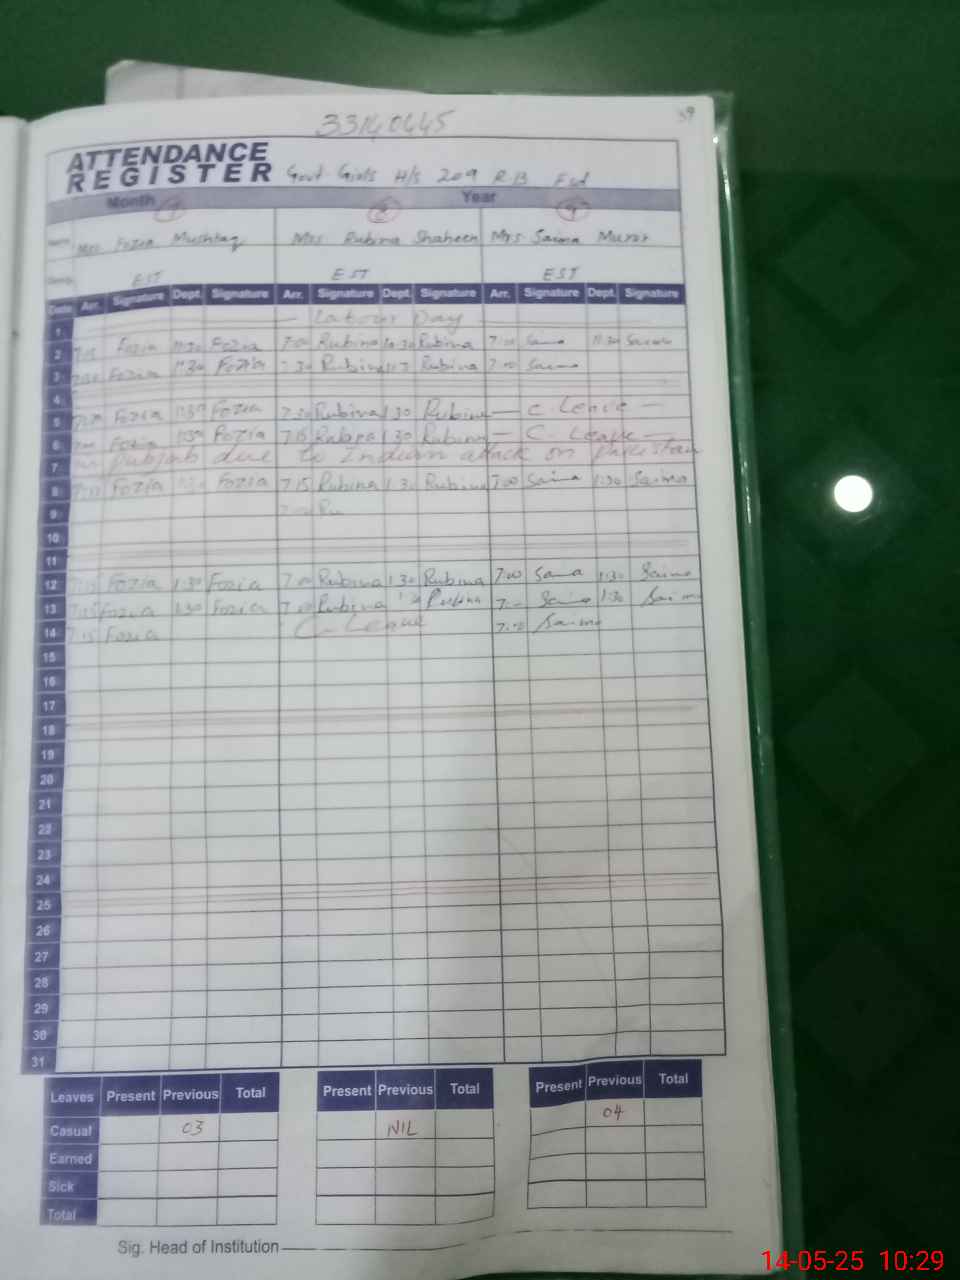 39
33140445
ATTENDANCE
REGISTER Govt Girls H/S 209 R.B Fsd
Month Year
Mrs Fozia Mushtaq Mrs Rubina Shaheen Mrs Saima Munir
EST EST EST
Date Arr. Signature Dept. Signature Arr. Signature Dept. Signature Arr. Signature Dept. Signature
1 — Labour Day —
2 7:15 Fozia 11:30 Fozia 7:00 Rubina Rubina 7:00 Saima 11:30 Saima
3 Fozia 11:30 Fozia Rubina Rubina 7:00 Saima
4
5 Fozia 1:30 Fozia 7:30 Rubina 1:30 Rubina — C. Leave —
6 Fozia 1:30 Fozia 7:15 Rubina 1:30 Rubina — C. Leave —
7 punjab due to Indian attack on pakistan
8 Fozia 1:30 Fozia 7:15 Rubina 1:30 Rubina 7:00 Saima 1:30 Saima
9 7:00 Ru
10
11
12 7:15 Fozia 1:30 Fozia 7:00 Rubina 1:30 Rubina 7:00 Saima 1:30 Saima
13 7:15 Fozia 1:30 Fozia 7:00 Rubina Rubina Saima 1:30 Saima
14 7:15 Fozia C. Leave 7:00 Saima
15
16
17
18
19
20
21
22
23
24
25
26
27
28
29
30
31
Leaves Present Previous Total Present Previous Total Present Previous Total
Casual 03 NIL 04
Earned
Sick
Total
Sig. Head of Institution
14-05-25 10:29